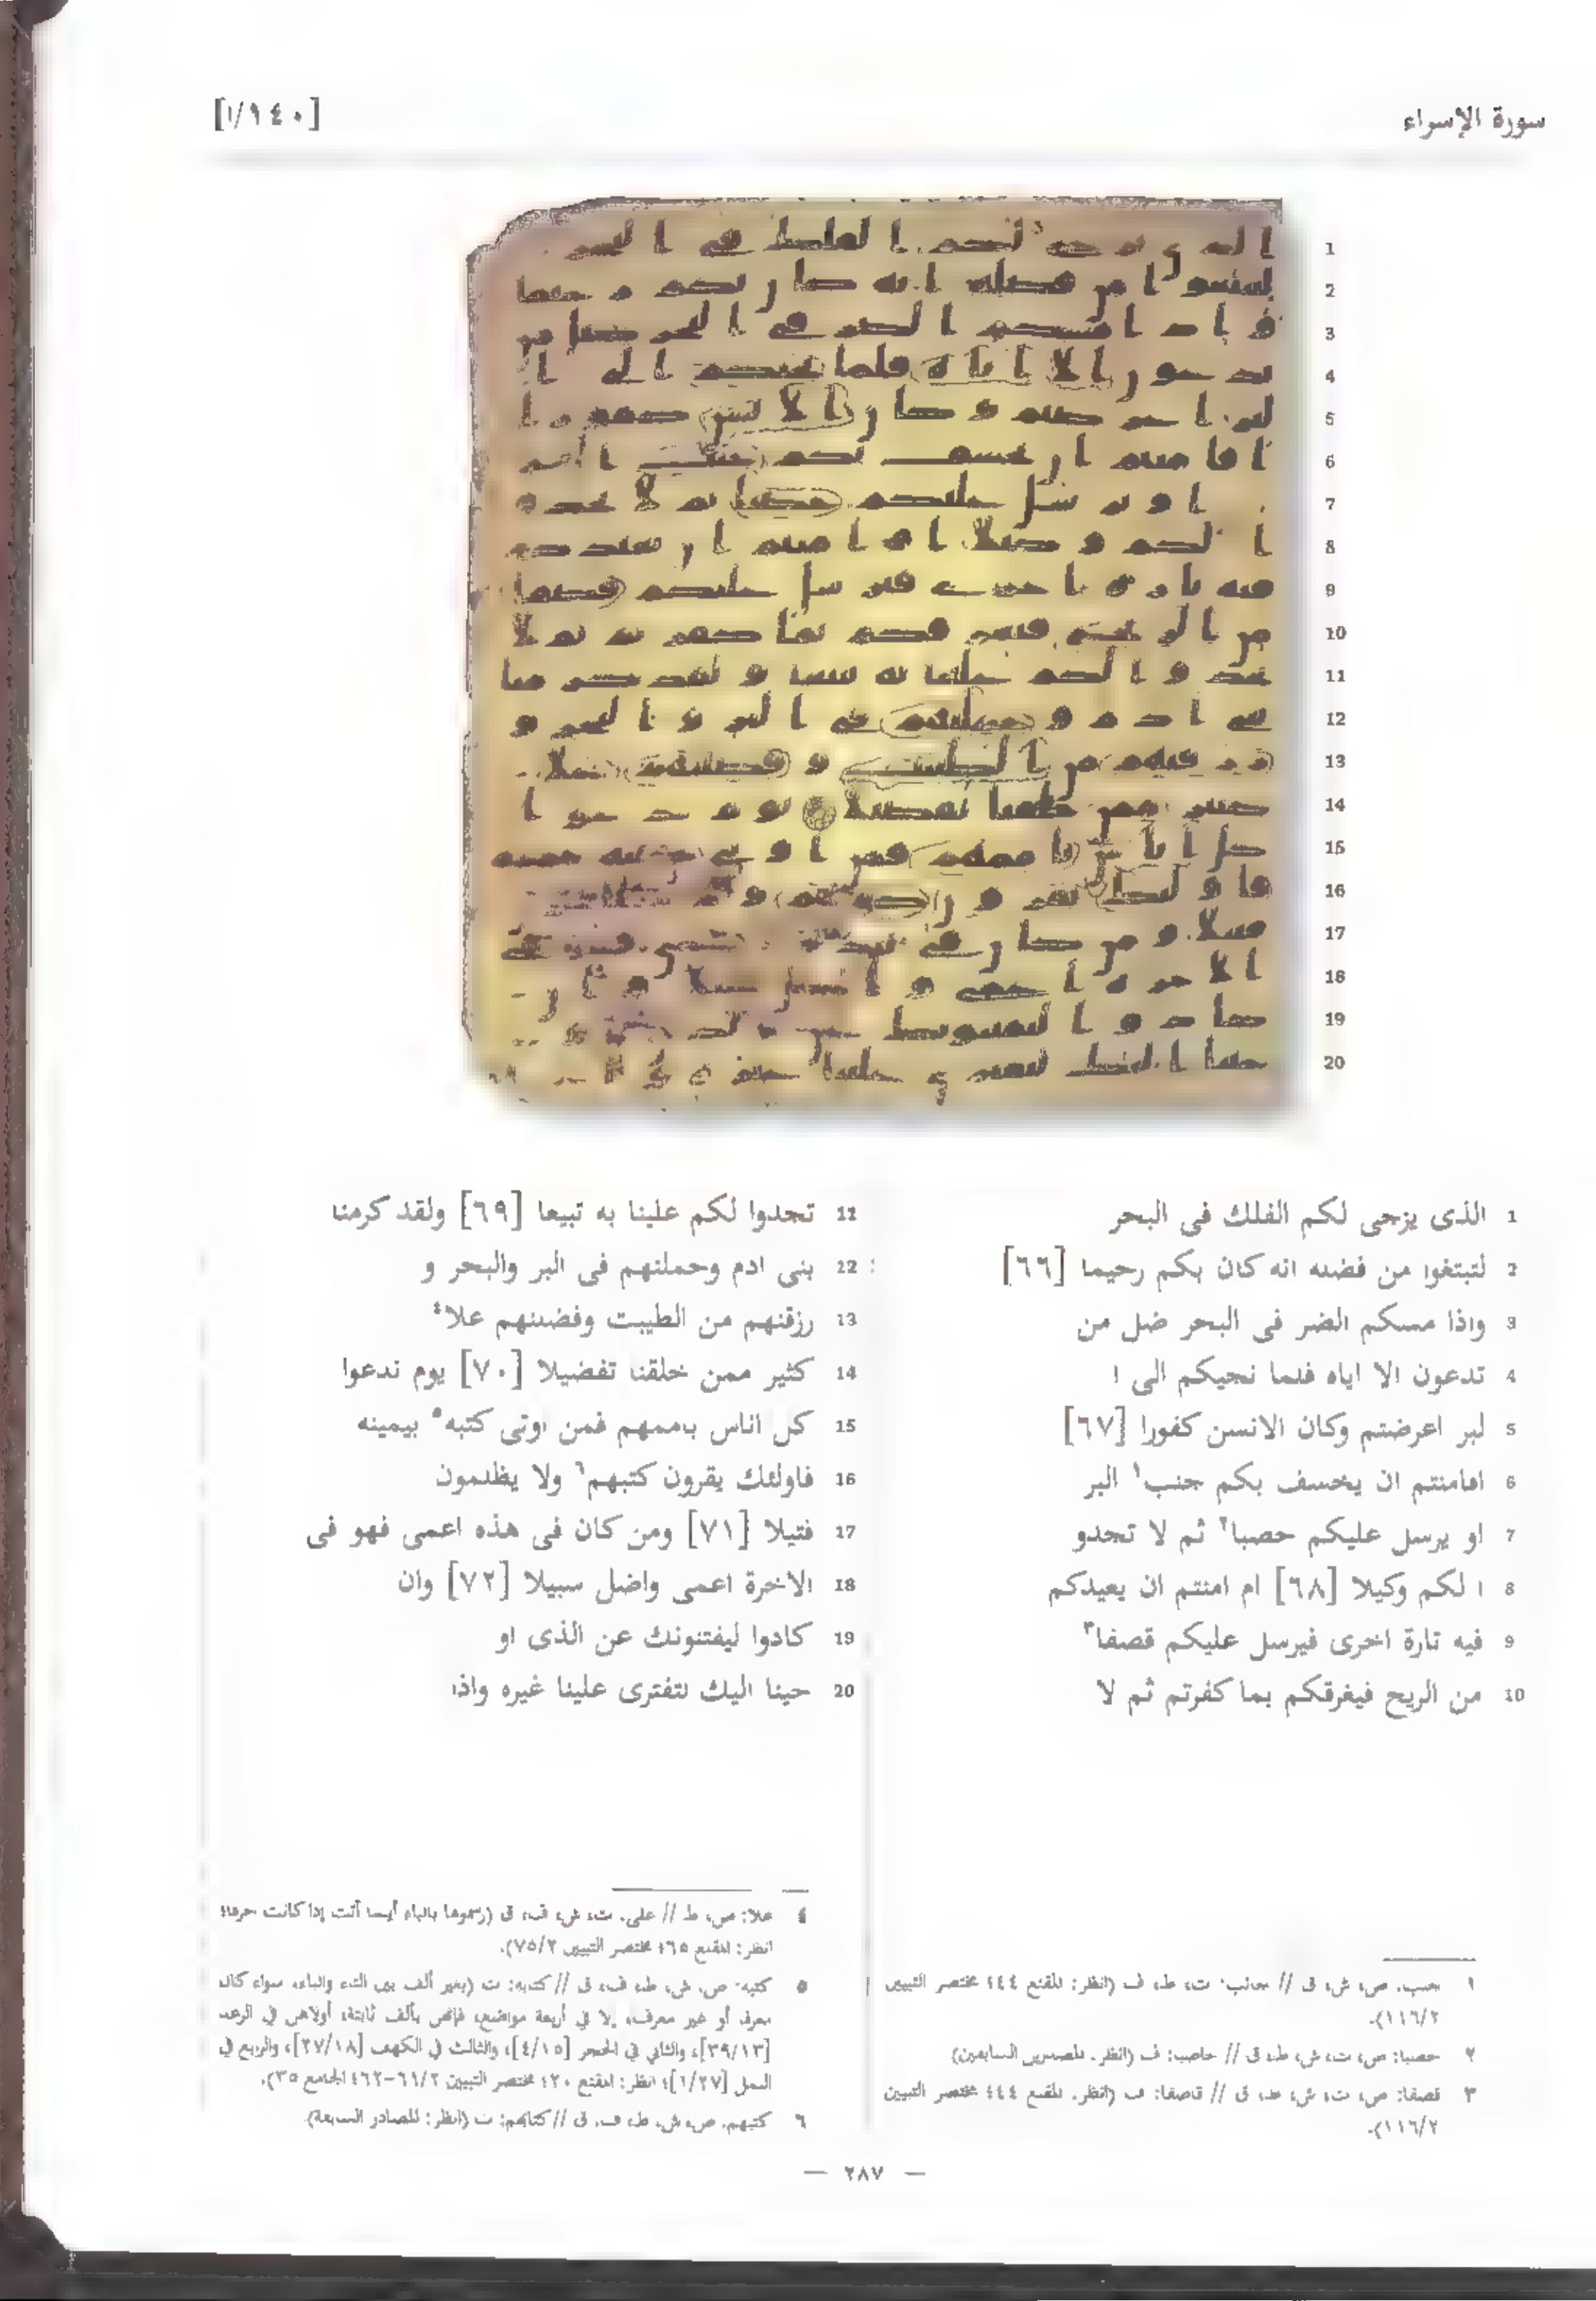 سورة الإسراء
[١/١٤٠]
1 الذى يزجى لكم الفلك فى البحر
2 لتبتغوا من فضله انه كان بكم رحيما [٦٦]
3 واذا مسكم الضر فى البحر ضل من
4 تدعون الا اياه فلما نجيكم الى ا
5 لبر اعرضتم وكان الانسن كفورا [٦٧]
6 افامنتم ان يخسف بكم جنب١ البر
7 او يرسل عليكم حصبا٢ ثم لا تجدو
8 ا لكم وكيلا [٦٨] ام امنتم ان يعيدكم
9 فيه تارة اخرى فيرسل عليكم قصفا٣
10 من الريح فيغرقكم بما كفرتم ثم لا
11 تجدوا لكم علينا به تبيعا [٦٩] ولقد كرمنا
22 بنى ادم وحملنهم فى البر والبحر و
13 رزقنهم من الطيبت وفضلنهم علا٤
14 كثير ممن خلقنا تفضيلا [٧٠] يوم ندعوا
15 كل اناس باممهم فمن اوتى كتبه٥ بيمينه
16 فاولئك يقرون كتبهم٦ ولا يظلمون
17 فتيلا [٧١] ومن كان فى هذه اعمى فهو فى
18 الاخرة اعمى واضل سبيلا [٧٢] وان
19 كادوا ليفتنونك عن الذى او
20 حينا اليك لتفترى علينا غيره واذا
١ جنب: ص، ش، ق // جانب: ت، ط، ف (انظر: المقنع ٤٤؛ مختصر التبيين
١١٦/٢).
٢ حصبا: ص، ت، ش، ط، ق // حاصبا: ف (انظر: المصدرين السابقين)
٣ قصفا: ص، ت، ش، ط، ق // قاصفا: ف (انظر: المقنع ٤٤؛ مختصر التبيين
١١٦/٢).
٤ علا: ص، ط // على: ت، ش، ف، ق (رسموها بالياء أينما أتت إذا كانت حرفا؛
انظر: المقنع ٦٥؛ مختصر التبيين ٧٥/٢).
٥ كتبه: ص، ش، ط، ف، ق // كتابه: ت (بغير ألف بين التاء والباء، سواء كان
معرفا أو غير معرف، إلا في أربعة مواضع، فإنهن بألف ثابتة، أولاهن في الرعد
[٣٩/١٣]، والثاني في الحجر [٤/١٥]، والثالث في الكهف [٢٧/١٨]، والربع في
النمل [١/٢٧]؛ انظر: المقنع ٢٠؛ مختصر التبيين ٦١/٢-٦٢؛ الجامع ٣٥).
٦ كتبهم: ص، ش، ط، ف، ق // كتابهم: ت (انظر: المصادر السابقة)
— ٢٨٧ —